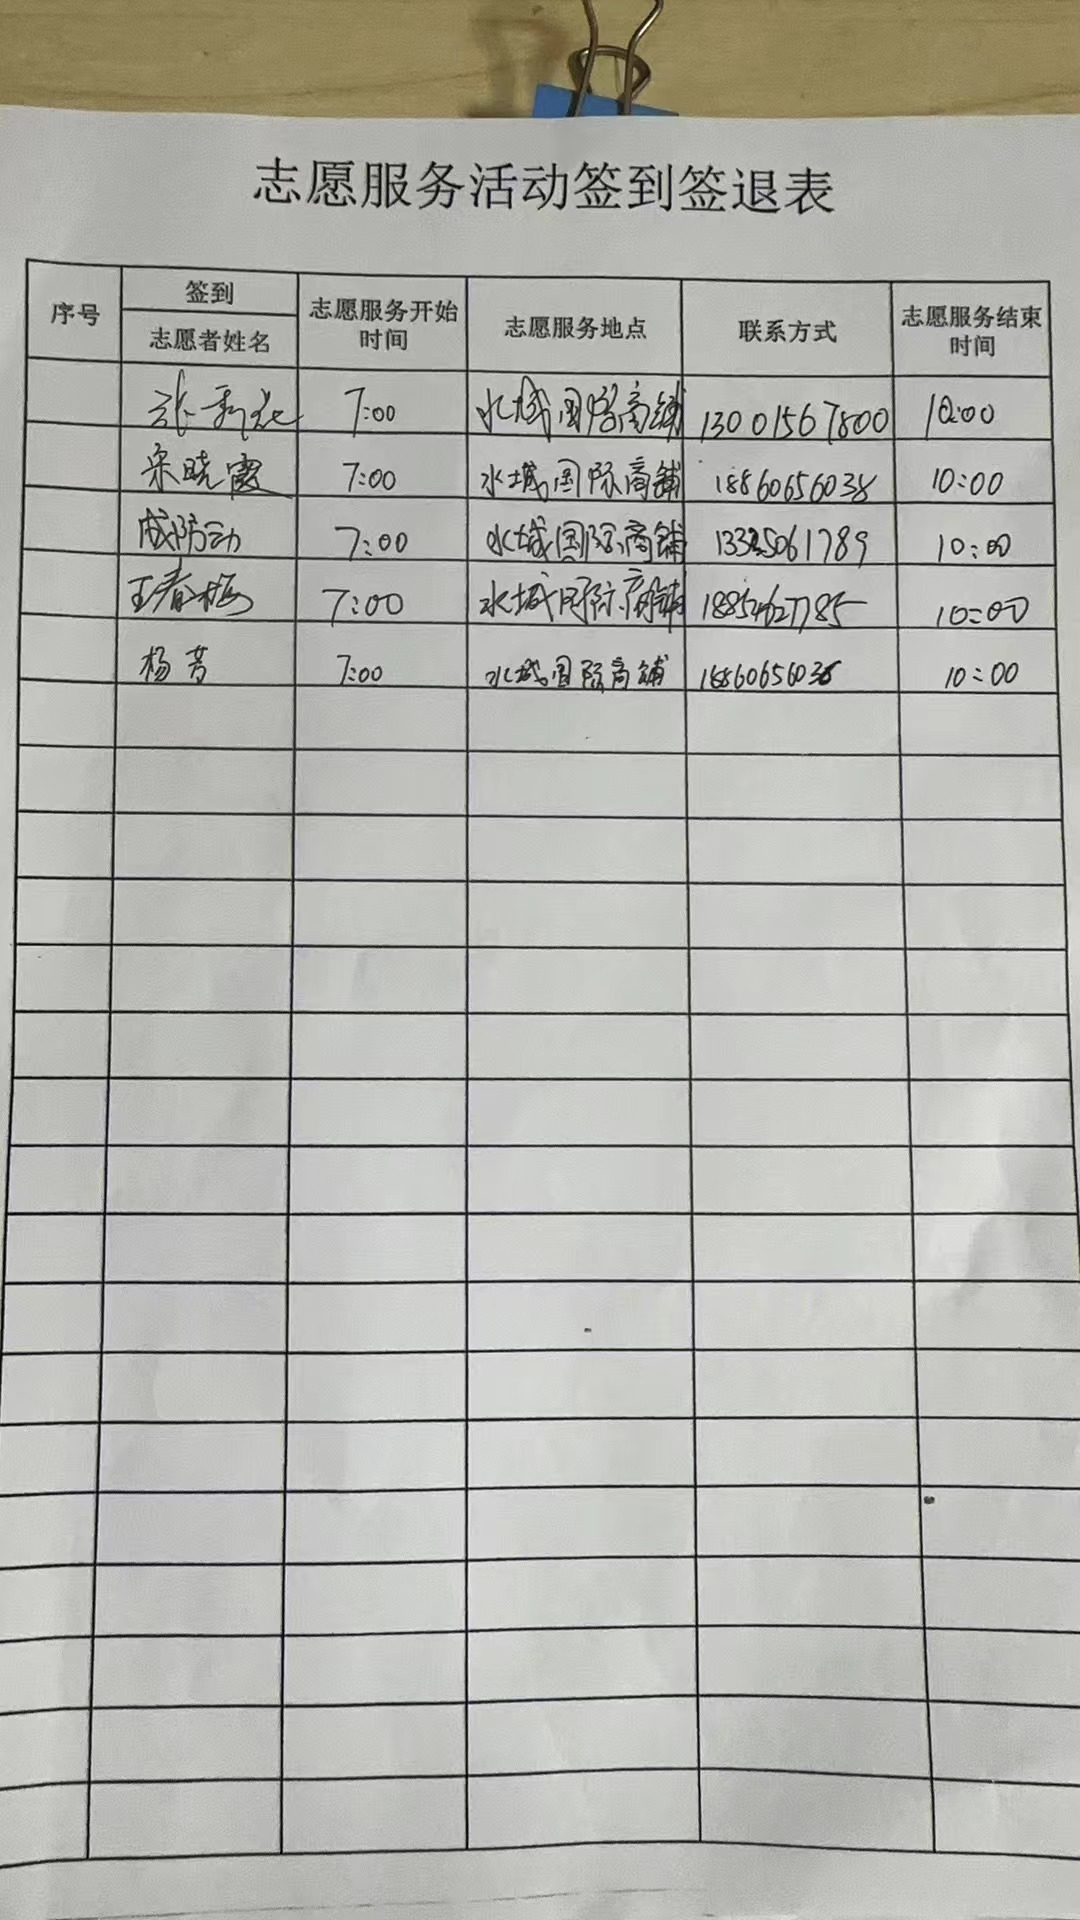 志愿服务活动签到签退表
序号 签到 志愿者姓名 志愿服务开始时间 志愿服务地点 联系方式 志愿服务结束时间
张秀花 7:00 水城国际商铺 13001567800 10:00
宋晓霞 7:00 水城国际商铺 18860656038 10:00
7:00 水城国际商铺 10:00
王春梅 7:00 水城国际商铺 10:00
杨芳 7:00 水城国际商铺 10:00